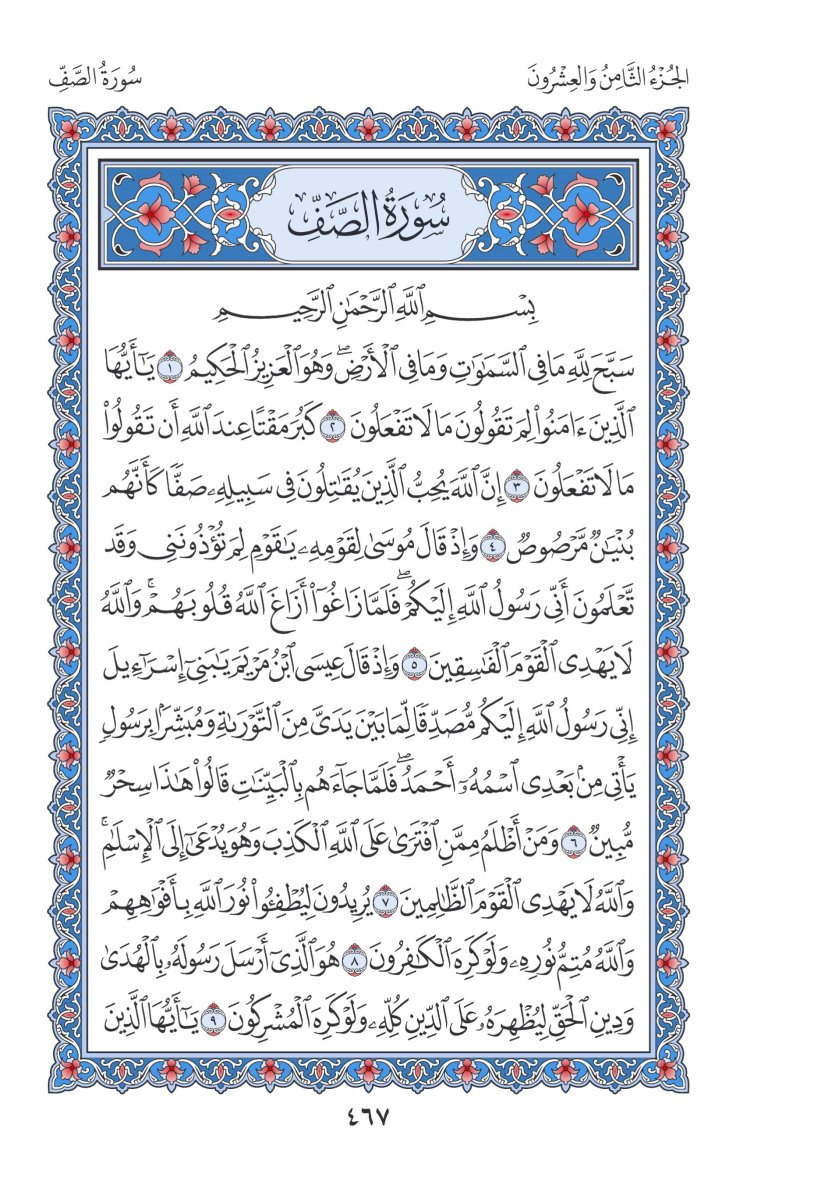 الجُزْءُ الثَّامِنُ وَالعِشْرُونَ
سُورَةُ الصَّفِّ
سُورَةُ الصَّفِّ
بِسْمِ ٱللَّهِ ٱلرَّحْمَٰنِ ٱلرَّحِيمِ
سَبَّحَ لِلَّهِ مَا فِي ٱلسَّمَٰوَٰتِ وَمَا فِي ٱلْأَرْضِۖ وَهُوَ ٱلْعَزِيزُ ٱلْحَكِيمُ ١ يَٰٓأَيُّهَا
ٱلَّذِينَ ءَامَنُواْ لِمَ تَقُولُونَ مَا لَا تَفْعَلُونَ ٢ كَبُرَ مَقْتًا عِندَ ٱللَّهِ أَن تَقُولُواْ
مَا لَا تَفْعَلُونَ ٣ إِنَّ ٱللَّهَ يُحِبُّ ٱلَّذِينَ يُقَٰتِلُونَ فِي سَبِيلِهِۦ صَفًّا كَأَنَّهُم
بُنْيَٰنٌ مَّرْصُوصٌ ٤ وَإِذْ قَالَ مُوسَىٰ لِقَوْمِهِۦ يَٰقَوْمِ لِمَ تُؤْذُونَنِي وَقَد
تَّعْلَمُونَ أَنِّي رَسُولُ ٱللَّهِ إِلَيْكُمْۖ فَلَمَّا زَاغُوٓاْ أَزَاغَ ٱللَّهُ قُلُوبَهُمْۚ وَٱللَّهُ
لَا يَهْدِي ٱلْقَوْمَ ٱلْفَٰسِقِينَ ٥ وَإِذْ قَالَ عِيسَى ٱبْنُ مَرْيَمَ يَٰبَنِيٓ إِسْرَٰٓءِيلَ
إِنِّي رَسُولُ ٱللَّهِ إِلَيْكُم مُّصَدِّقًا لِّمَا بَيْنَ يَدَيَّ مِنَ ٱلتَّوْرَىٰةِ وَمُبَشِّرًۢا بِرَسُولٍ
يَأْتِي مِنۢ بَعْدِي ٱسْمُهُۥٓ أَحْمَدُۖ فَلَمَّا جَآءَهُم بِٱلْبَيِّنَٰتِ قَالُواْ هَٰذَا سِحْرٌ
مُّبِينٌ ٦ وَمَنْ أَظْلَمُ مِمَّنِ ٱفْتَرَىٰ عَلَى ٱللَّهِ ٱلْكَذِبَ وَهُوَ يُدْعَىٰٓ إِلَى ٱلْإِسْلَٰمِۚ
وَٱللَّهُ لَا يَهْدِي ٱلْقَوْمَ ٱلظَّٰلِمِينَ ٧ يُرِيدُونَ لِيُطْفِـُٔواْ نُورَ ٱللَّهِ بِأَفْوَٰهِهِمْ
وَٱللَّهُ مُتِمُّ نُورِهِۦ وَلَوْ كَرِهَ ٱلْكَٰفِرُونَ ٨ هُوَ ٱلَّذِيٓ أَرْسَلَ رَسُولَهُۥ بِٱلْهُدَىٰ
وَدِينِ ٱلْحَقِّ لِيُظْهِرَهُۥ عَلَى ٱلدِّينِ كُلِّهِۦ وَلَوْ كَرِهَ ٱلْمُشْرِكُونَ ٩ يَٰٓأَيُّهَا ٱلَّذِينَ
٤٦٧